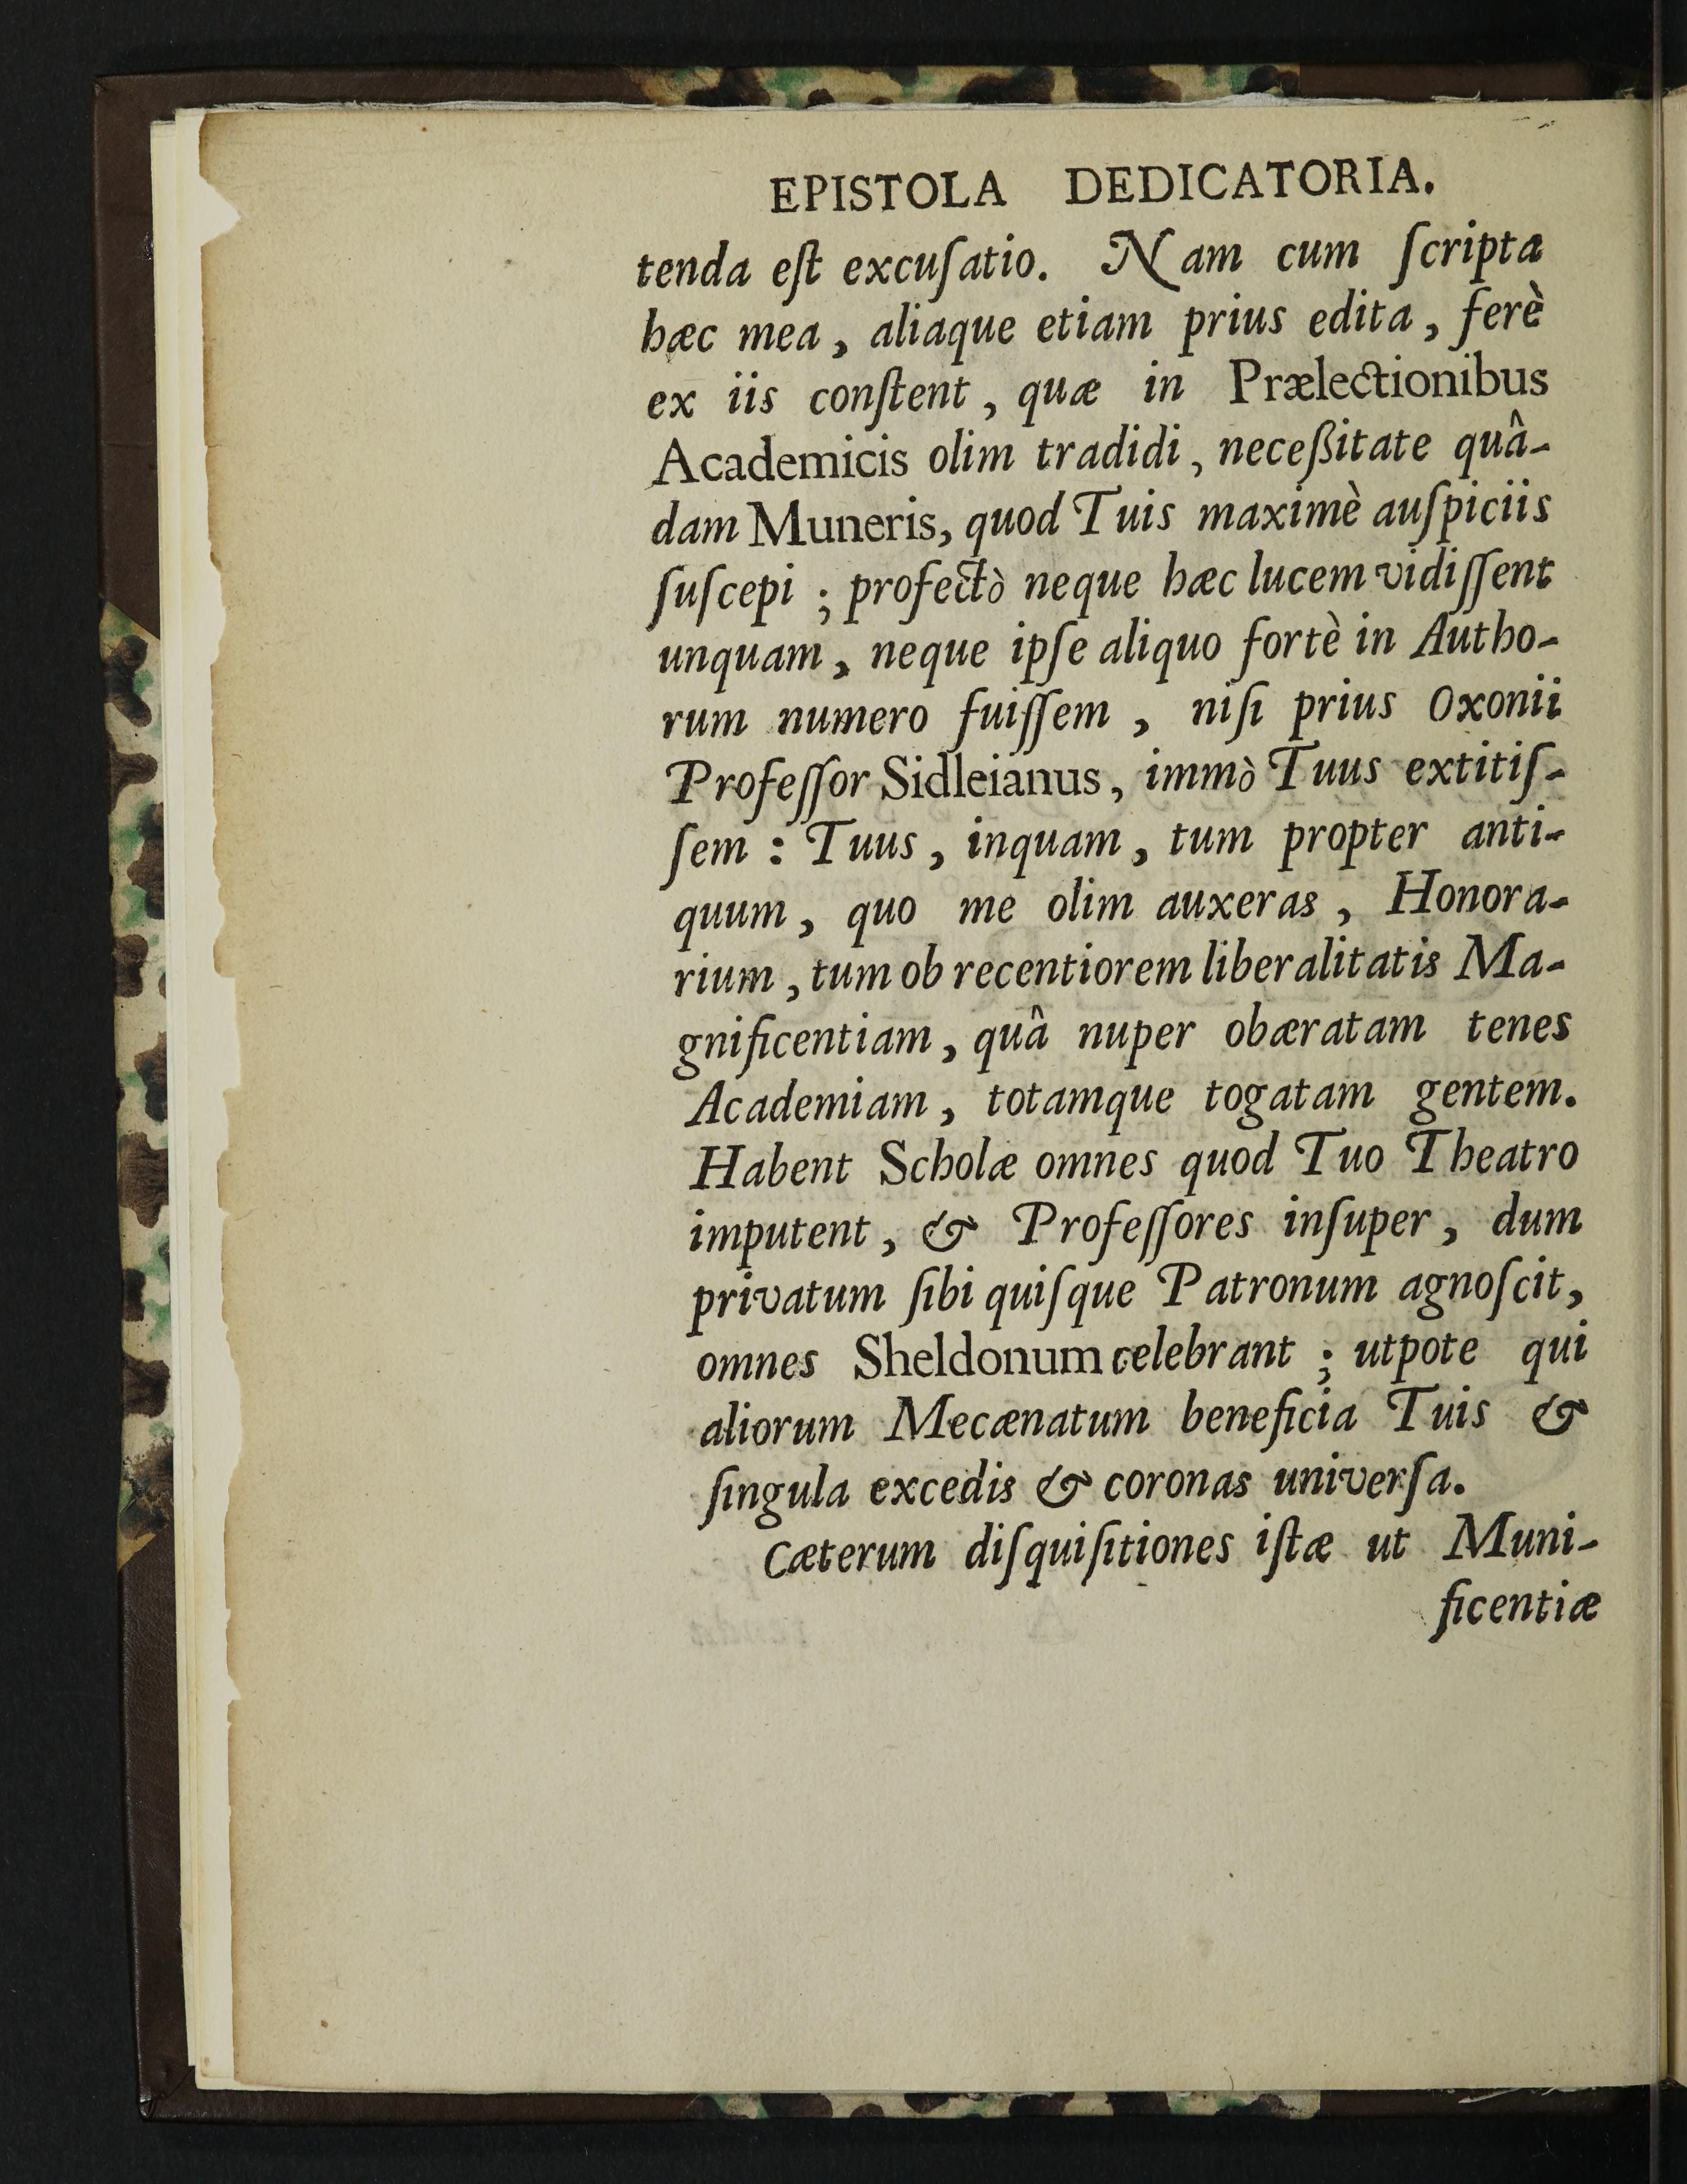 EPISTOLA DEDICATORIA.
tenda eſt excuſatio. Nam cum ſcripta
hæc mea, aliaque etiam prius edita, ferè
ex iis conſtent, quæ in Prælectionibus
Academicis olim tradidi, neceßitate quâ-
dam Muneris, quod Tuis maximè auſpiciis
ſuſcepi; profectò neque hæc lucem vidiſſent
unquam, neque ipſe aliquo fortè in Autho-
rum numero fuiſſem, niſi prius Oxonii
Profeſſor Sidleianus, immò Tuus extitiſ-
ſem: Tuus, inquam, tum propter anti-
quum, quo me olim auxeras, Honora-
rium, tum ob recentiorem liberalitatis Ma-
gnificentiam, quâ nuper obæratam tenes
Academiam, totamque togatam gentem.
Habent Scholæ omnes quod Tuo Theatro
imputent, & Profeſſores inſuper, dum
privatum ſibi quiſque Patronum agnoſcit,
omnes Sheldonum celebrant; utpote qui
aliorum Mecænatum beneficia Tuis &
ſingula excedis & coronas univerſa.
Cæterum diſquiſitiones iſtæ ut Muni-
ficentiæ